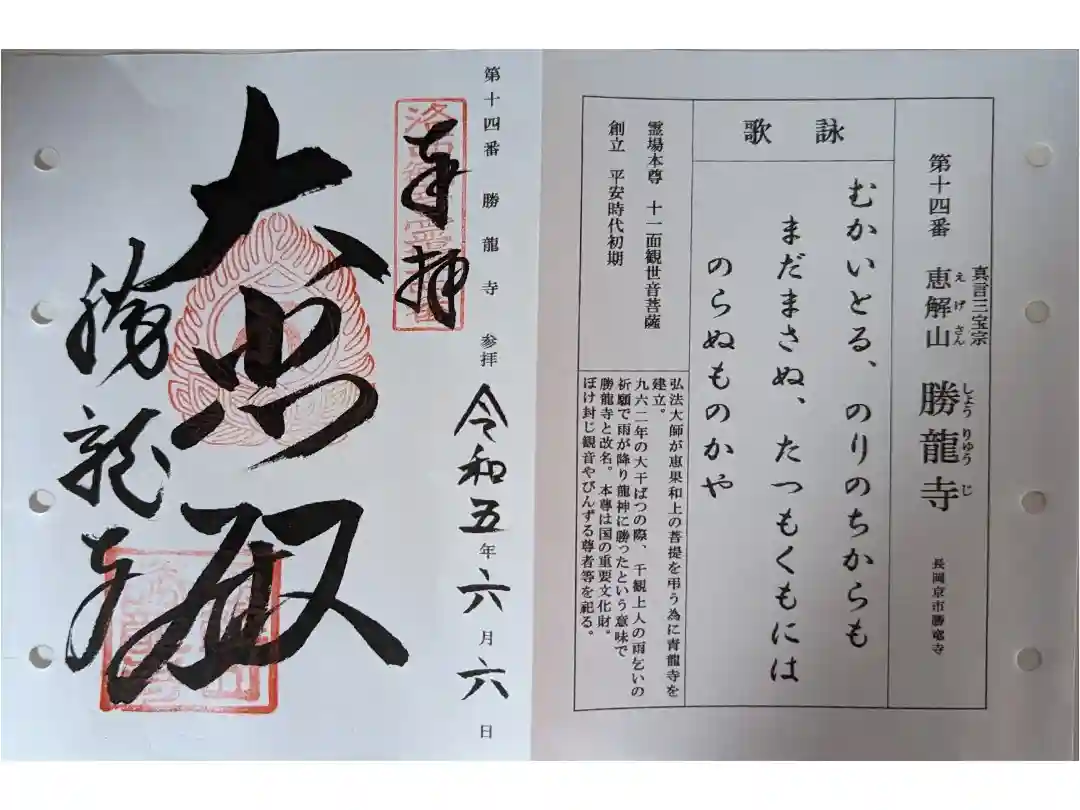 第十四番 真言三宝宗 恵解山 勝龍寺 長岡京市勝竜寺
えげさん
しょうりゅうじ
詠歌
むかいとる、のりのちからも
まだまさぬ、たつもくもには
のらぬものかや
霊場本尊 十一面観世音菩薩
創立 平安時代初期
弘法大師が恵果和上の菩提を弔う為に青龍寺を
建立。
九六二年の大干ばつの際、千観上人の雨乞いの
祈願で雨が降り龍神に勝ったという意味で
勝龍寺と改名。本尊は国の重要文化財。
ぼけ封じ観音やびんずる尊者等を祀る。
第十四番 勝龍寺 参拝 令和五年六月六日
奉拝
大悲殿
勝龍寺